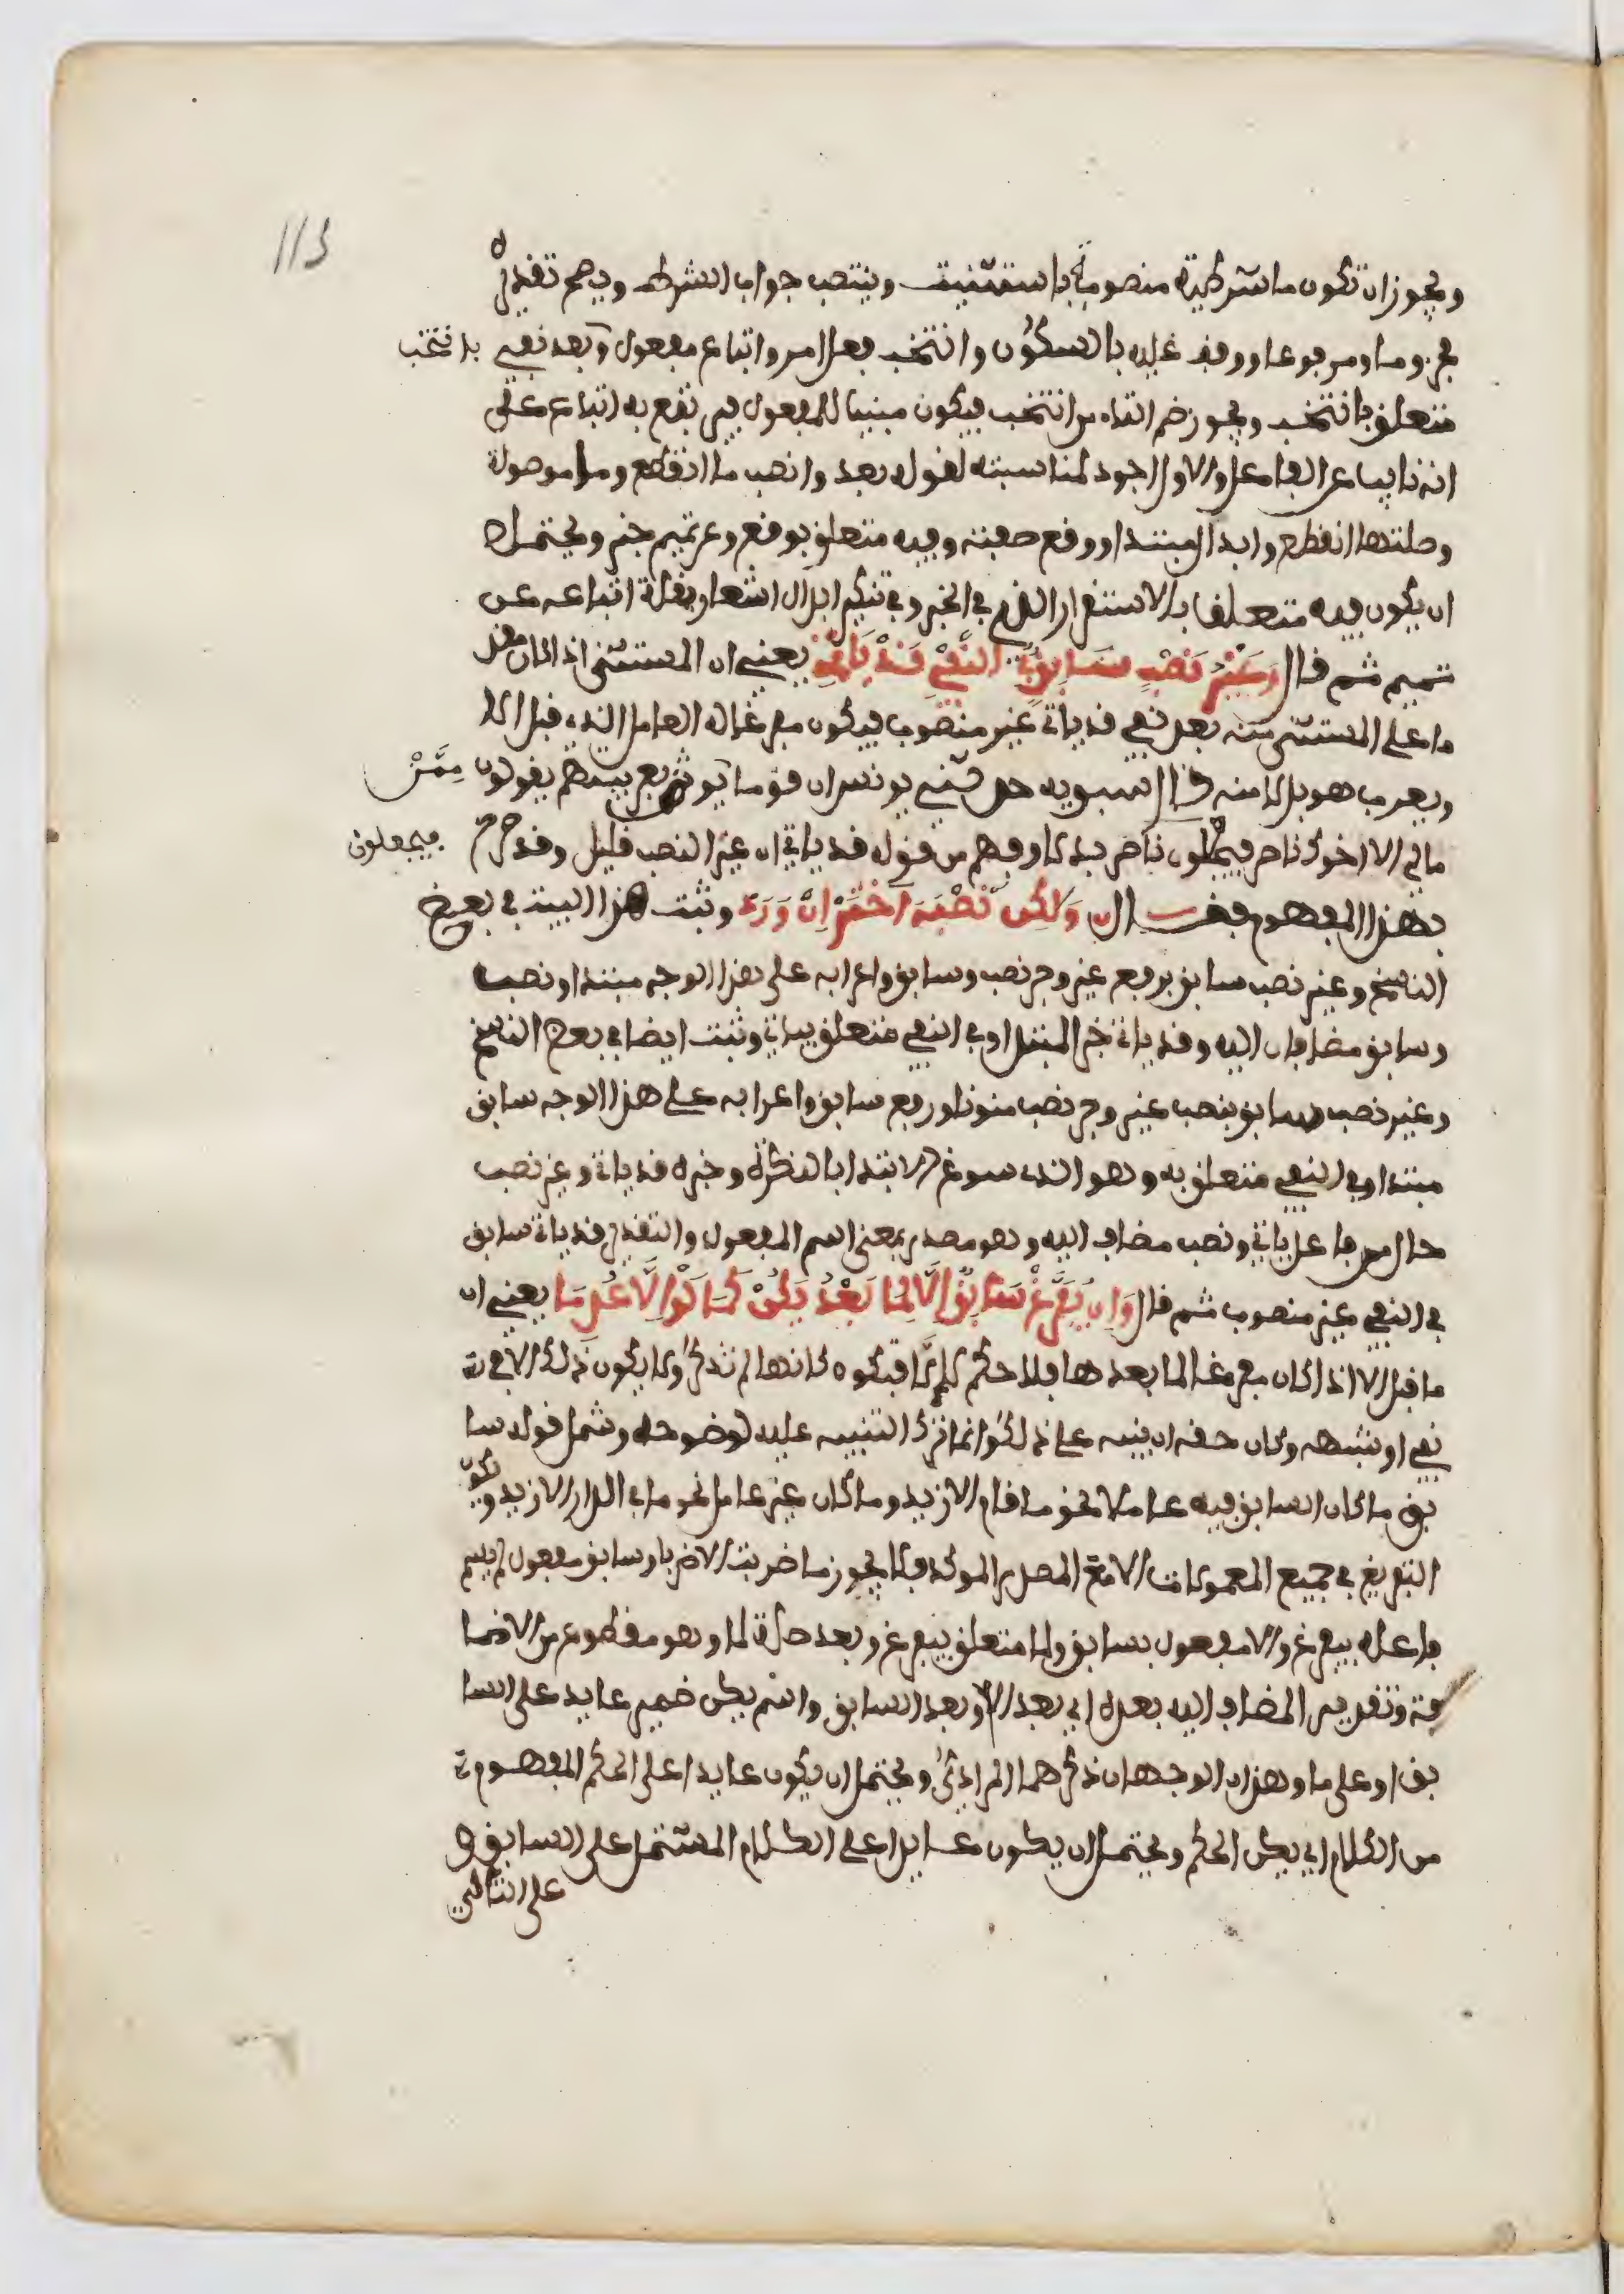 113
ويجوز ان تكون ما شرطية منصوبة باستثنيت وينتصب جواب الشرط ويصح تقديره
مجزوما ومرفوعا ووقف عليه بالسكون وانتخب فعل امر واتباع مفعول وبعد نفي بانتخب
متعلق بانتخب ويجوز ضم التاء من انتخب فيكون مبنيا للمفعول فيرتفع به اتباع على
انه نايب عن الفاعل والاول اجود لمناسبته لقوله بعد وانصب ما انقطع وما موصولة
وصلتها انقطع وابدال مبتدا ووقع صفته وفيه متعلق بوقع وعن تميم خبر ويحتمل
ان يكون فيه متعلفا بالاستقرار الذي في الخبر وفي تنكير ابدال اشعار بقلة اتباعه عن
تميم ثم قال وَغَيْرُ نَصْبِ سَابِقٍ في النَّفْيِ قَدْ يَاتِي يعني ان المستثنى اذا كان مقد
ما على المستثنى منه بعد نفي قد ياتي غير منصوب فيكون مفرغا له العامل الذي قبل الا
ويعرب هو بدلا منه قال سبويه حدثني يونس ان قوما يوثق بعربيتهم يقولون مِمَّنْ
مالي الا اخوك ناصر فيجعلون ناصر بدلا وفهم من قوله قد ياتي ان غير النصب قليل وقد صرح فيجعلون
بهذا المفهوم فقال وَلَكِن نَصْبَهُ اخْتَرْ اِنْ وَرَدْ وثبت هذا البيت في بعض
النسخ وغير نصب سابق برفع غير وجر نصب وسابق واعرابه على هذا الوجه مبتدا ونصب
وسابق مضافان اليه وقد ياتي خبر المبتدا وفي النفي متعلق بياتي وثبت ايضا في بعض النسخ
وغير نصب سابق بنصب غير وجر نصب منونا ورفع سابق واعرابه على هذا الوجه سابق
مبتدا وفي النفي متعلق به وهو الذي سوغ الابتدا بالنكرة وخبره قد ياتي وغير نصب
حال من فاعل ياتي ونصب مضاف اليه وهو مصدر بمعنى اسم المفعول والتقدير قد ياتي سابق
في النفي غير منصوب ثم قال وَاِن يُفَرَّغْ سَابِقٌ اِلَّا لِمَا بَعْدُ يَكُنْ كَمَا لَوِ الَّا عُدِمَا يعني ان
ما قبل الا اذا كان مفرغا لما بعدها فلا حكم لالا فتكون كانها لم تذكر ولا يكون ذلك الا في
نفي او شبهه وكان حقه ان ينبه على ذلك وانما ترك التنبيه عليه لوضوحه وشمل قوله سا
بق ما كان السابق فيه عاملا نحو ما قام الا زيد وما كان غير عامل نحو ما في الدار الا زيد ويكون
التفريغ في جميع المعمولات الا مع المصدر الموكد فلا يجوز ما ضربت الا ضربا وسابق مفعول لم يسم
فاعله بيفرغ والا مفعول بسابق ولما متعلق بيفرغ وبعد صلة لما وهو مقطوع من الاضا
فة وتقدير المضاف اليه بعده اي بعد الا وبعد السابق واسم يكن ضمير عايد على السا
بق او على ما وهذان الوجهان ذكرهما المرادي ويحتمل ان يكون عايدا على الحكم المفهوم
من الكلام اي يكن الحكم ويحتمل ان يكون عايدا على الكلام المشتمل على السابق و
على التالي